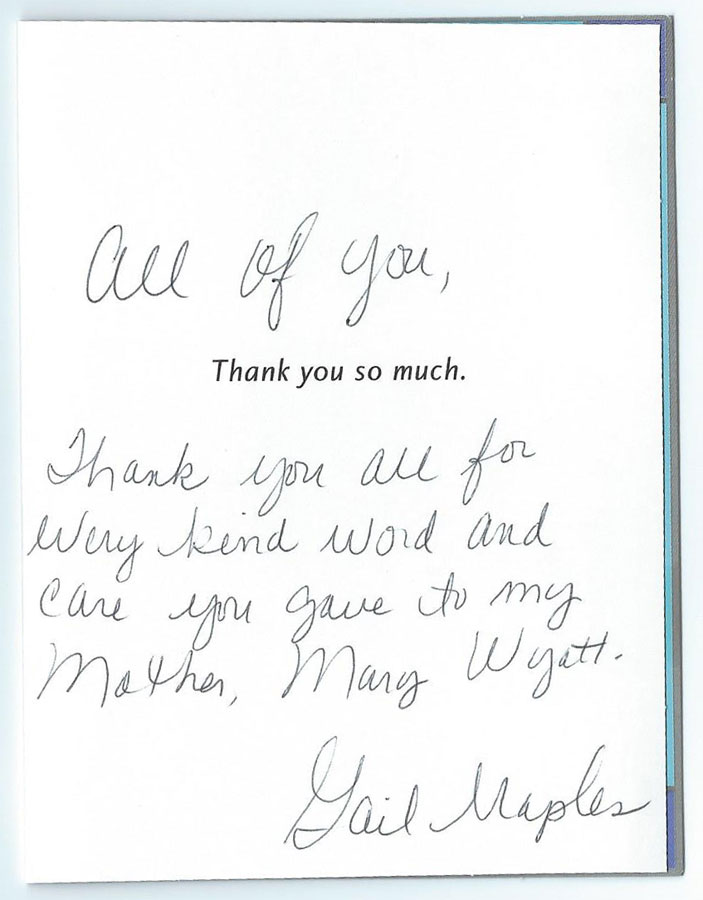 All of you,
Thank you so much.
Thank you all for
every kind word and
care you gave to my
Mother, Mary Wyatt.
Gail Maples